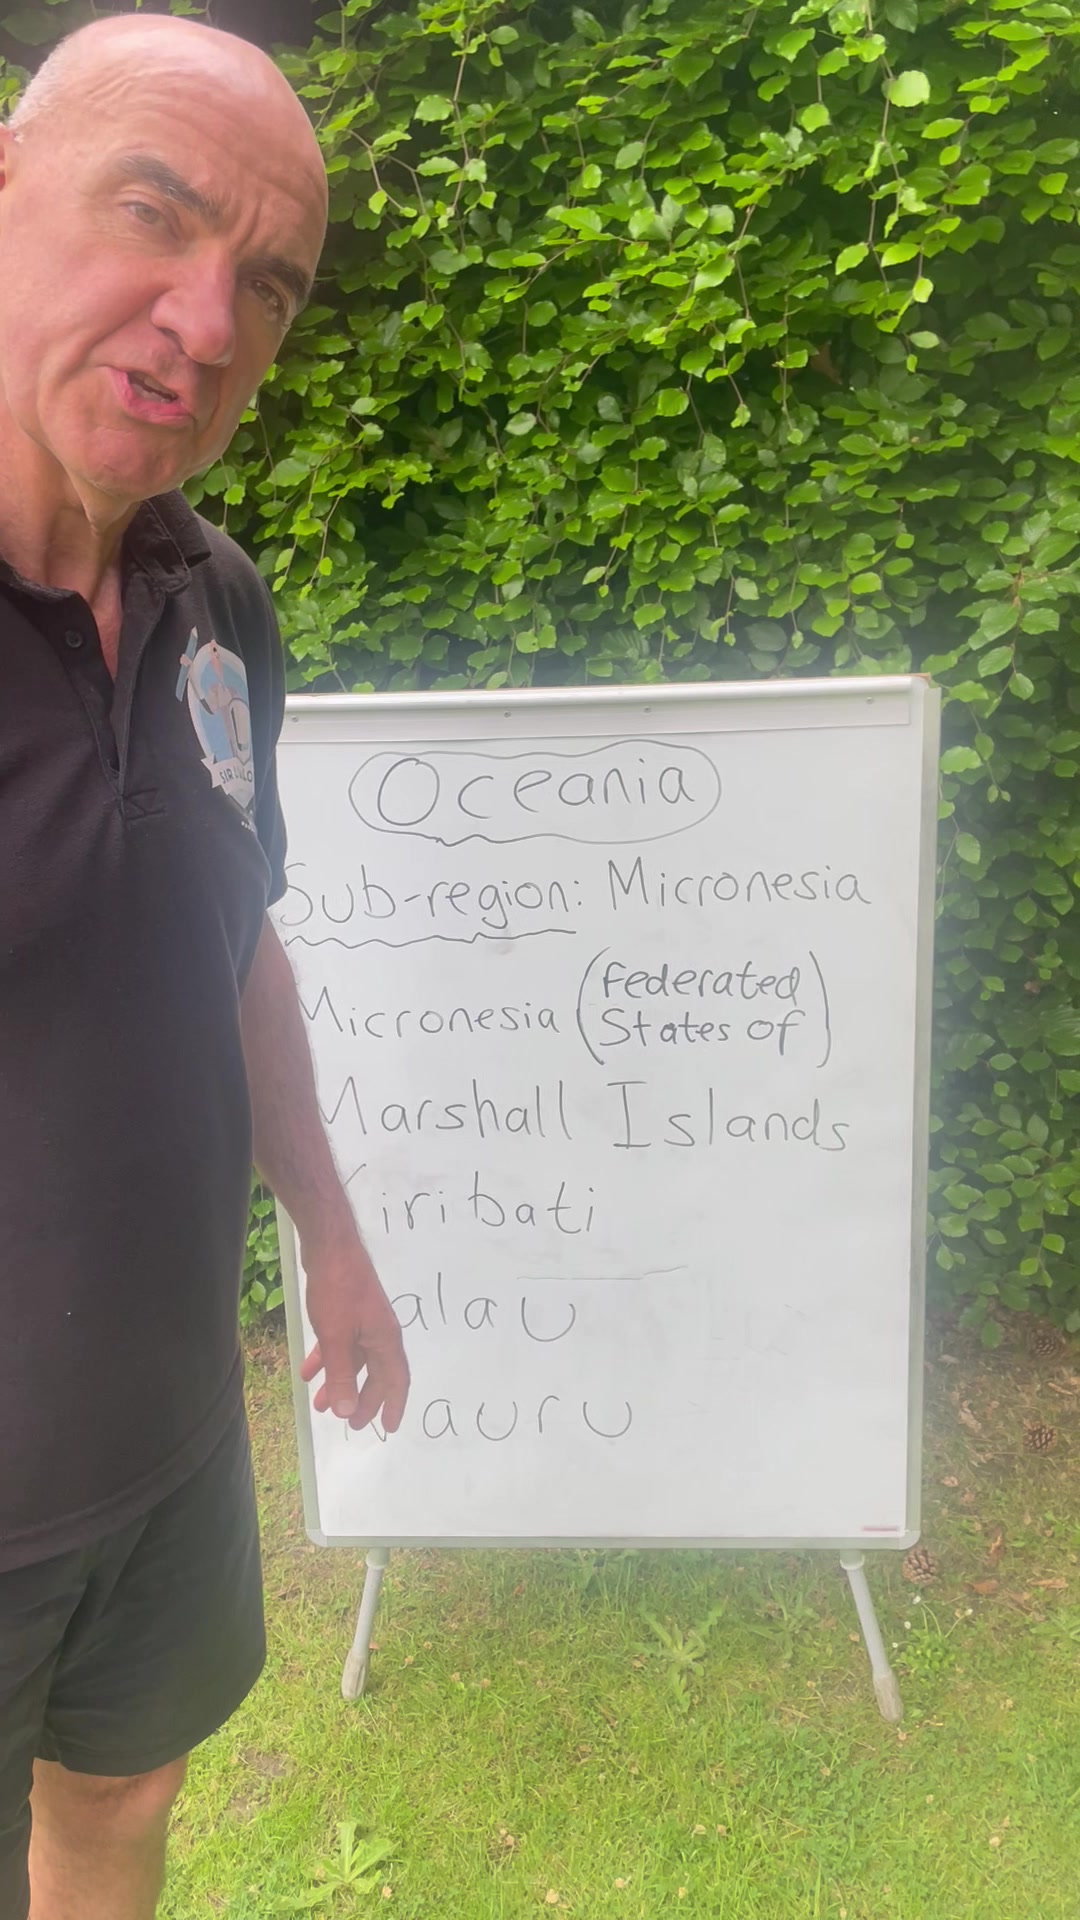 Oceania
Sub-region: Micronesia
Micronesia (Federated
States of)
Marshall Islands
Kiribati
Palau
Nauru